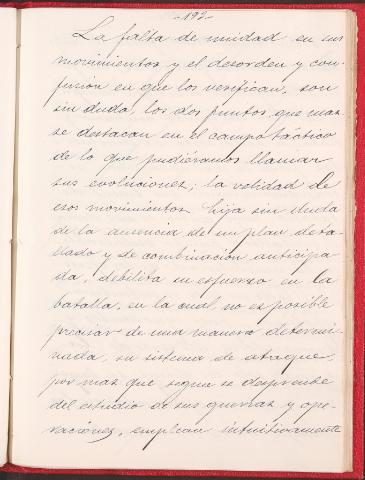 -193-
La falta de unidad en sus
movimientos y el desorden y con-
fusion en que los verifican, son
sin duda, los dos puntos que mas
se destacan en el campo táctico
de lo que pudiéramos llamar
sus evoluciones; la
de
esos movimientos hija sin duda
de la ausencia de un plan deta-
llado y de combinacion anticipa-
da, debilita su esfuerzo en la
batalla, en la cual, no es posible
precisar de una manera determi-
nada, su sistema de ataque,
por mas que segun se desprende
del estudio de sus guerras y ope-
raciones, emplean intuitivamente